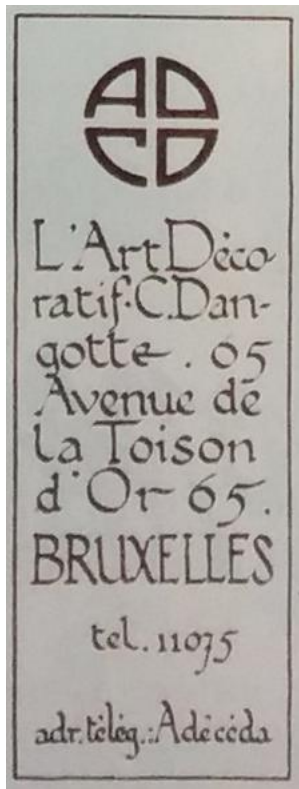 AD
CD
L'Art Déco-
ratif·C.Dan-
gotte. 05
Avenue de
la Toison
d'Or 65.
BRUXELLES
tel. 11075
adr. télég.: Adécéda